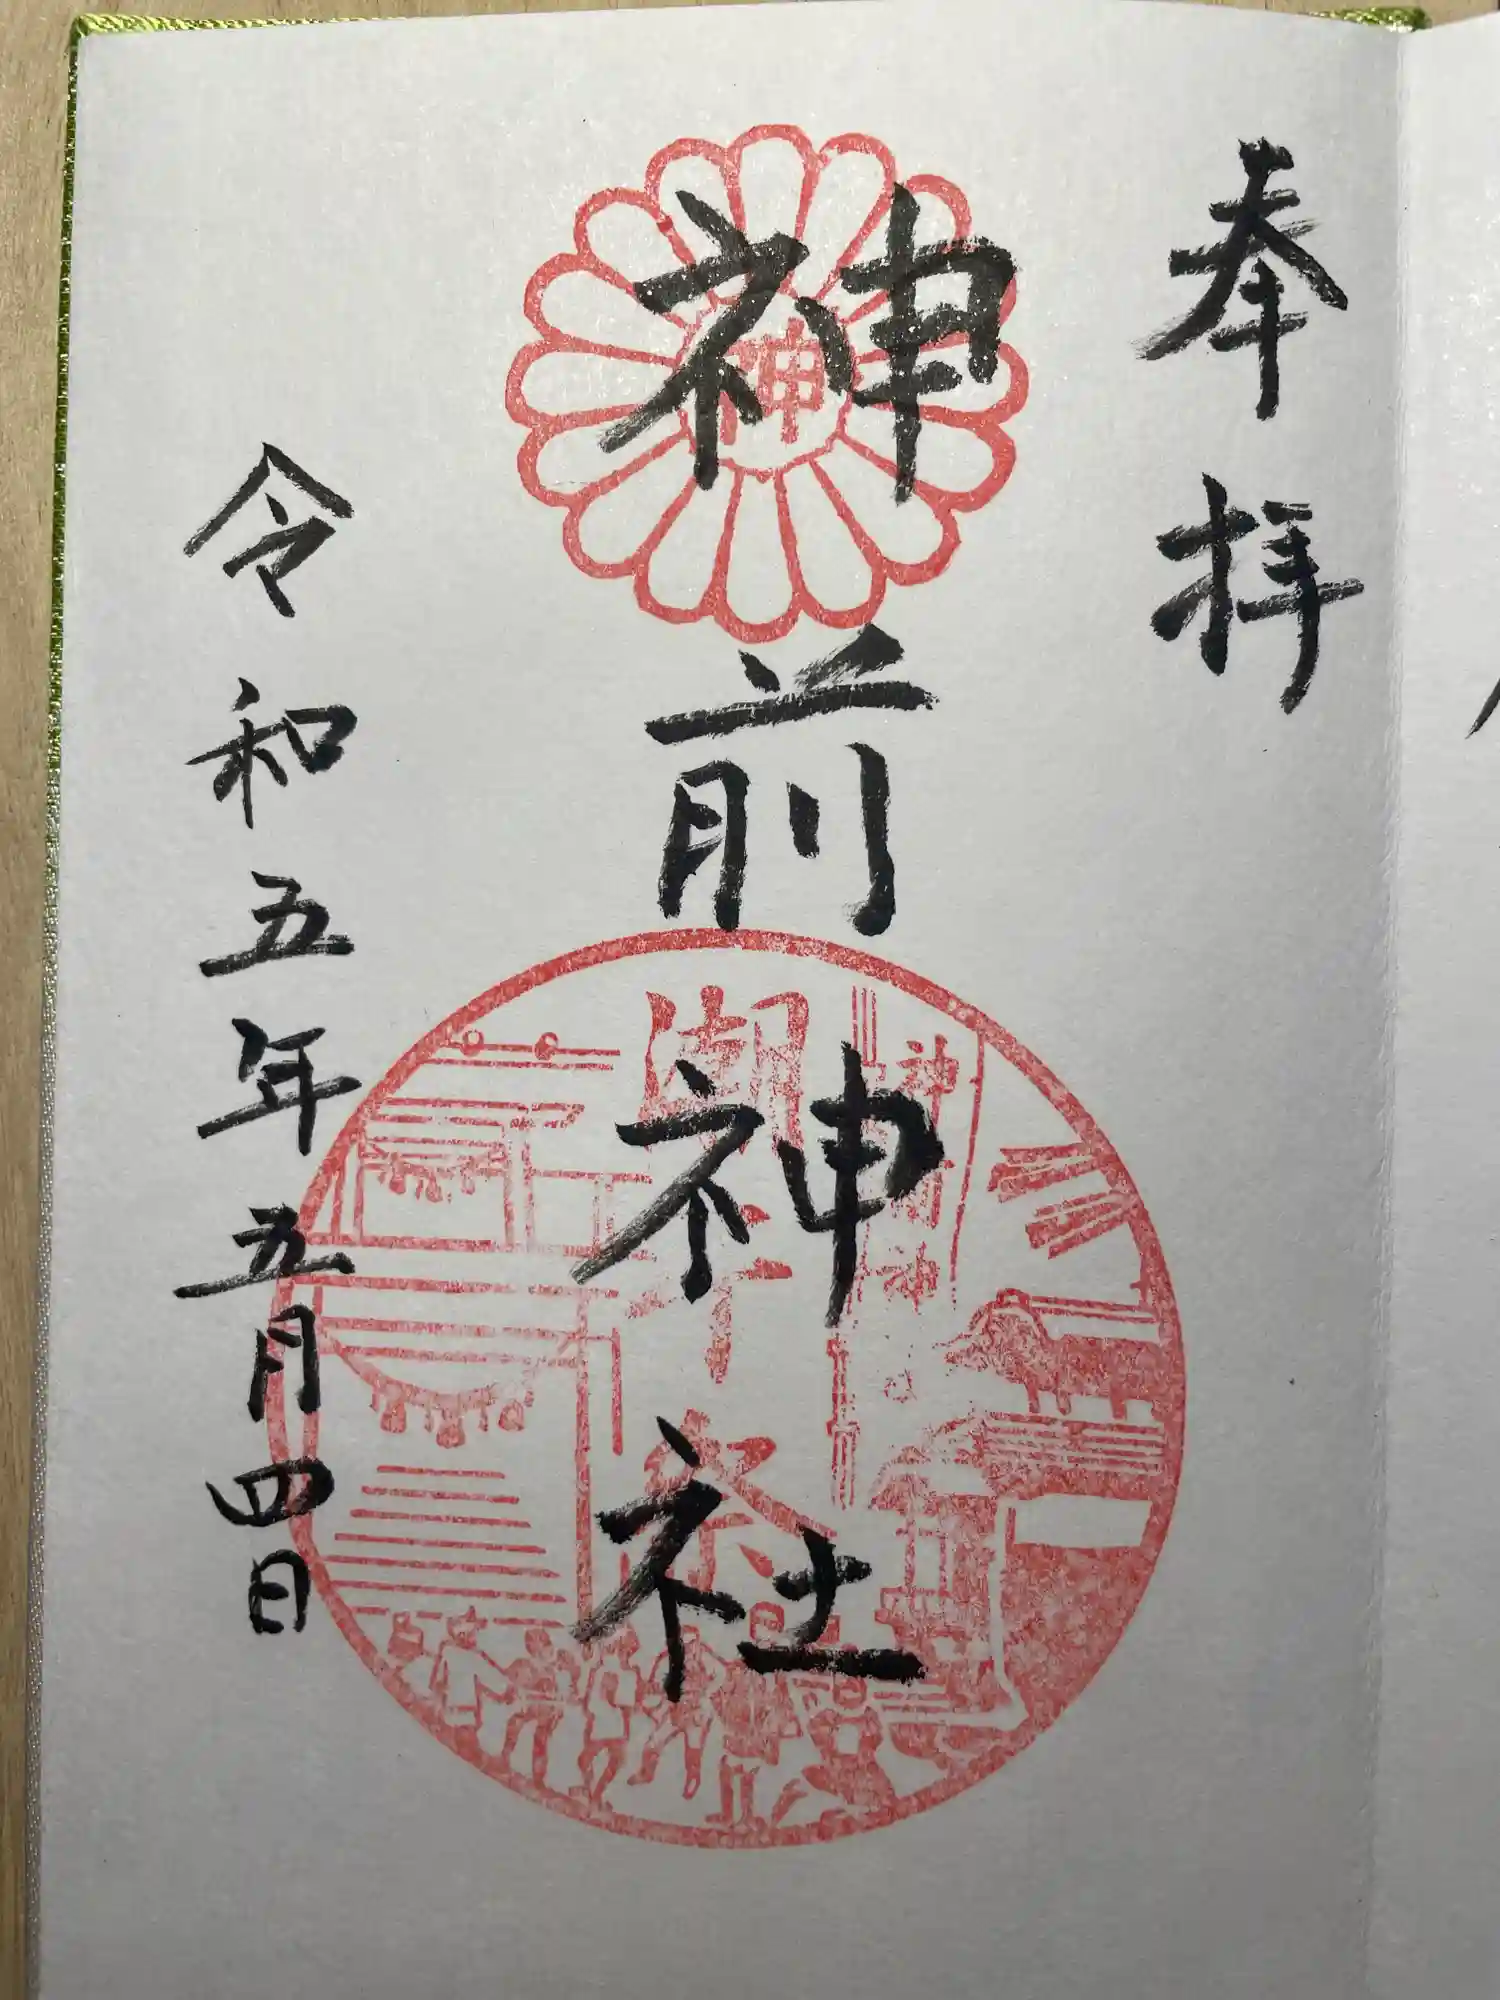 奉拝
神前神社
令和五年五月四日
神
潮干祭
神前神